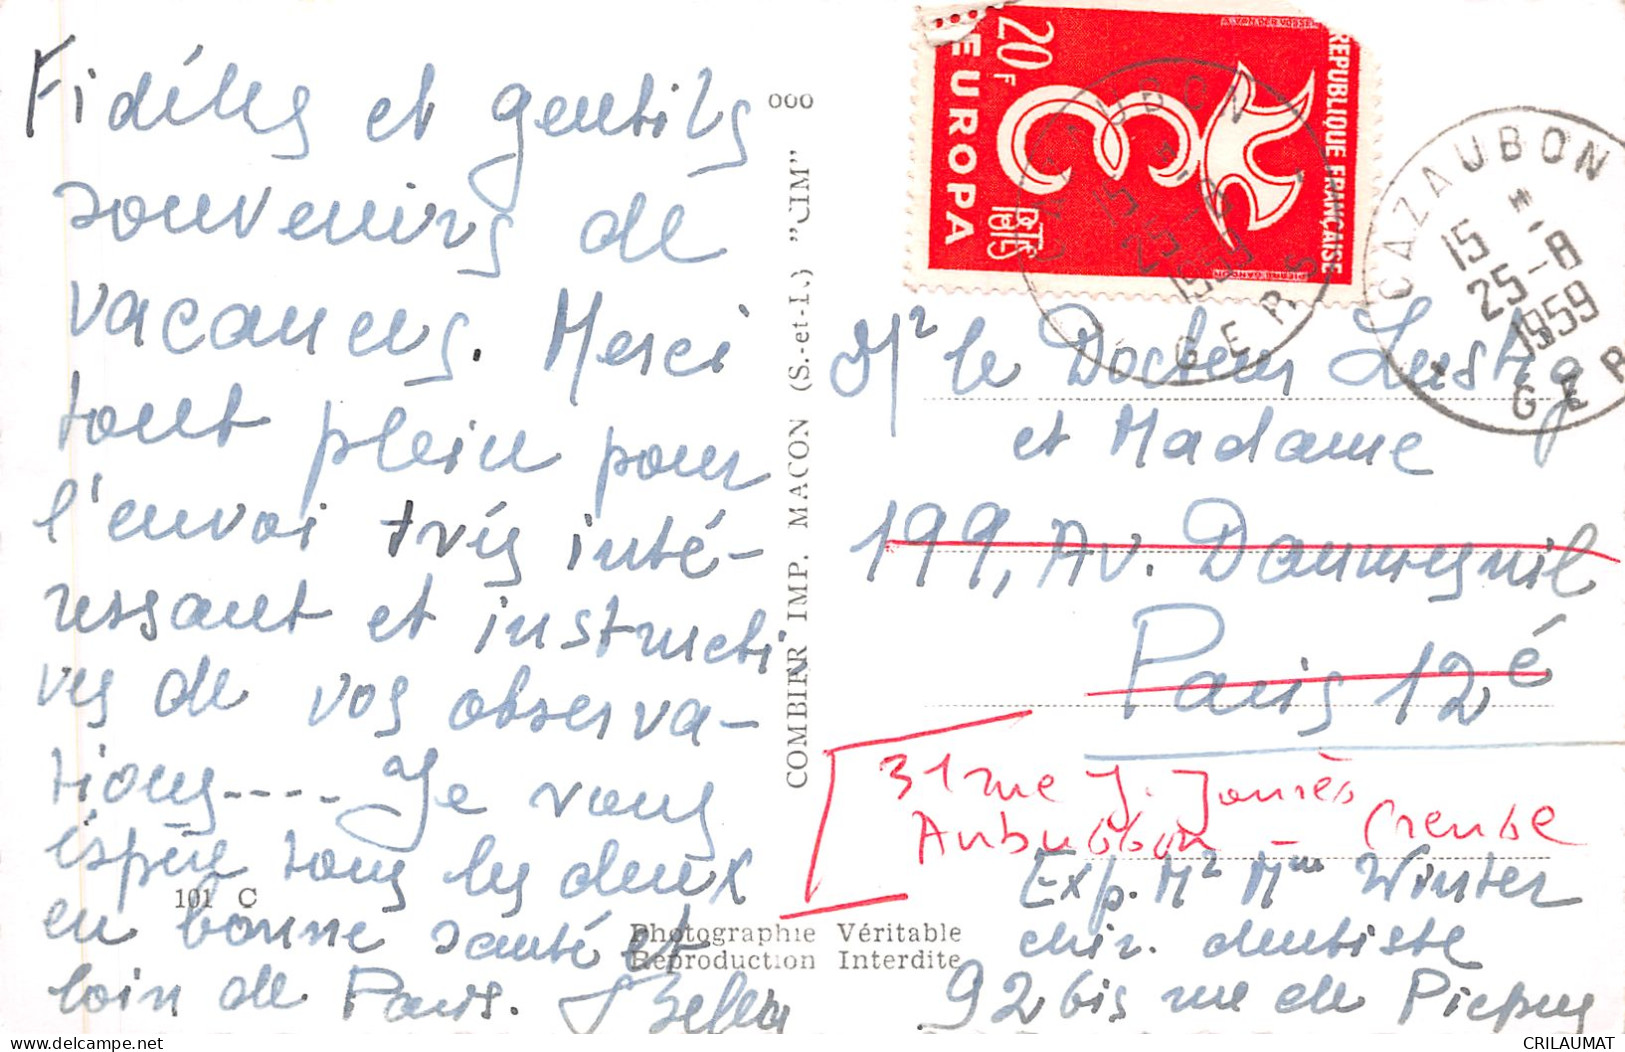 Fidéles et gentils
souvenirs de
vacances. Merci
tout plein pour
l'envoi très inté-
ressant et instructi
ves de vos observa-
tions---- Je vous
espère tous les deux
en bonne santé et
loin de Paris.
101 C
ooo
COMBIER IMP. MACON (S.-et-L.) "CIM"
Photographie Véritable
Reproduction Interdite
REPUBLIQUE FRANÇAISE
20F
EUROPA
POSTES
CAZAUBON
15 * -
25-8
1959
GERS
CAZAUBON
15 * -
25-8
1959
GER
Mr le Docteur Lustig
et Madame
199, Av. Daumesnil
Paris 12é
31 rue J. Jaurès
Aubusson - Creuse
Exp. Mr Mme Winter
chir. dentiste
92 bis rue de Picpus
CRILAUMAT